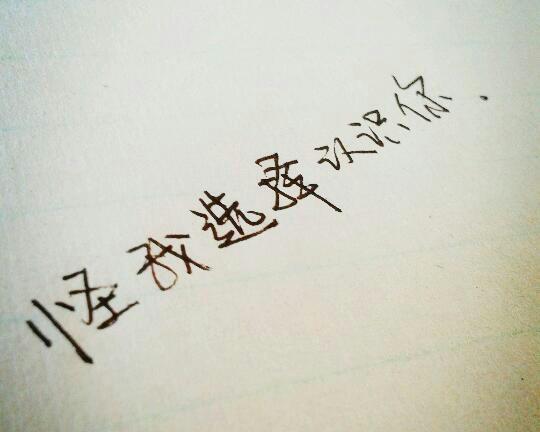 怪我选择认识你.